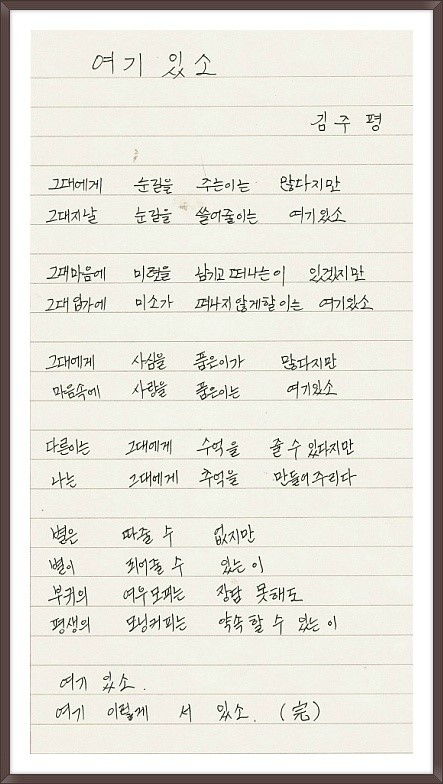 여기 있소
김 주 평
그대에게 눈길을 주는이는 많다지만
그대지날 눈길을 쓸어줄이는 여기있소
그대마음에 미련을 남기고떠나는이 있겠지만
그대입가에 미소가 떠나지않게할이는 여기있소
그대에게 사심을 품은이가 많다지만
마음속에 사랑을 품은이는 여기있소
다른이는 그대에게 수억을 줄 수 있다지만
나는 그대에게 추억을 만들어주리다
별은 따줄 수 없지만
별이 되어줄 수 있는 이
부귀의 여우모피는 장담 못해도
평생의 모닝커피는 약속 할 수 있는 이
여기 있소.
여기 이렇게 서 있소. (完)